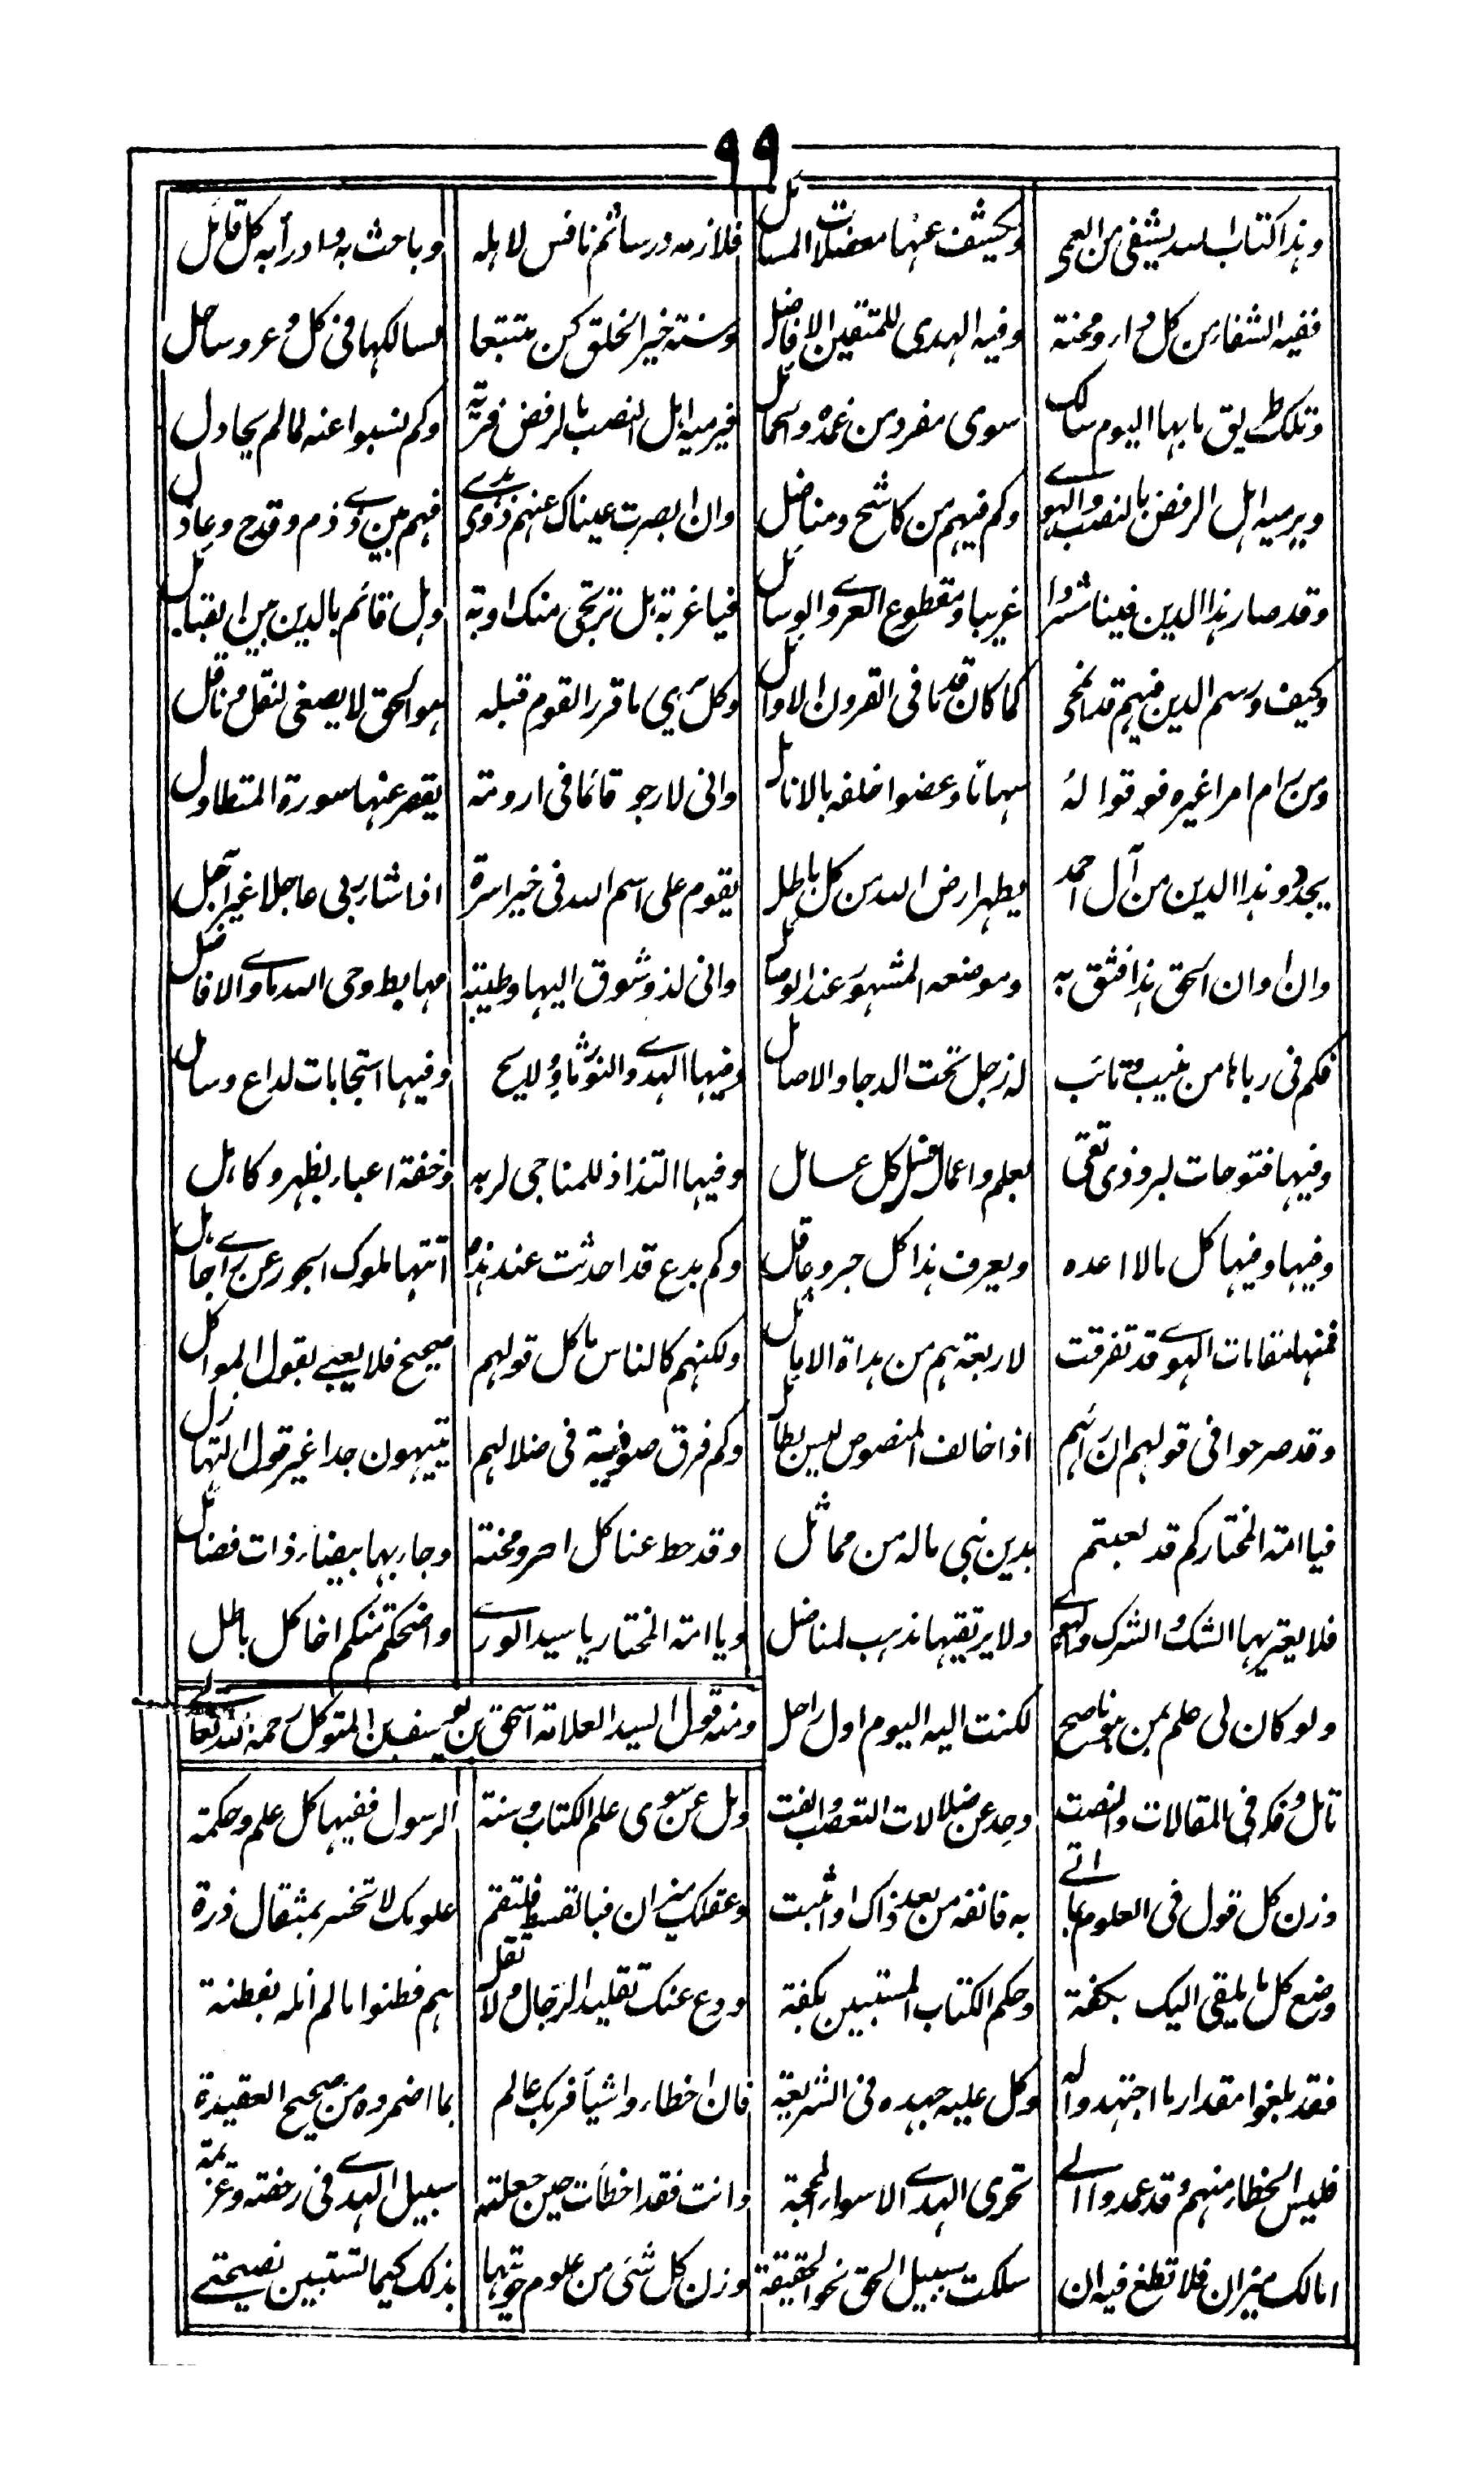 ٩٩
وهذا كتاب الله يشفي من العمى ويكشف عنها معضلات المسائل فلازمه ودرسا ثم نافس لاهله وباحث به وادرأ به كل قائل
ففيه الشفاء من كل داء ومحنة وفيه الهدى للمتقين الافاضل وسنة خير الخلق كن متتبعا لسالكها في كل وعر وساحل
وتلك طريق ما بها اليوم سالك سوى مفرد من غمده والحمائل فيرميه اهل النصب بالرفض فرية وكم نسبوا عنه لما لم يحاول
ويرميه اهل الرفض بالنصب والهوى وكم فيهم من كاشح ومناضل وان ابصرت عيناك عنهم ذوي هدى فهم بين ذي ذم وقدح وعاذل
وقد صار هذا الدين فينا مشردا غريبا ومقطوع العرى والوسائل فيا غربة هل ترتجى منك اوبة وهل قائم بالدين بين القبائل
وكيف ورسم الدين فيهم قد انمحى كما كان قدما في القرون الاوائل وكل يرى ما قرر القوم قبله هو الحق لا يصغى لنقل وناقل
ومن رام امرا غيره فوقوا له سهاما وعضوا خلفه بالانامل واني لارجو قائما في ارومة يقصر عنها سورة المتطاول
يجدد هذا الدين من آل احمد يطهر ارض الله من كل باطل يقوم على اسم الله في خير اسرة اذا شاء ربي عاجلا غير آجل
وان اوان الحق هذا فثق به وموضعه المشهور عند الوصائل واني لذو شوق اليها وطيبة مهابط وحي الله ماوى الافاضل
فكم في رباها من منيب وتائب له زجل تحت الدجا والاصائل وفيها الهدى والنور ثاو ولائح وفيها استجابات لداع وسائل
وفيها فتوحات لبر وذي تقى بعلم واعمال فنل كل عسائل وفيها التذاذ للمناجي لربه وخفة اعباء بظهر وكاهل
وفيها وفيها كل ما لا اعده ويعرف هذا كل حبر وعاقل وكم بدع قد احدثت عند هذه اتتها ملوك الجور عن راى جاهل
فمنها مقامات الهوى قد تفرقت لاربعة هم من هداة الاماثل ولكنهم كالناس ما كل قولهم صحيح فلا يعبى بقول المواكل
وقد صرحوا في قولهم ان رائهم اذا خالف المنصوص ليس بطائل وكم فرق صوفية في ضلالهم يتيهون جدا غير قول التهازل
فيا امة المختار كم قد لعبتم بدين نبي ماله من مماثل وقد حط عنا كل اصر ومحنة وجاء بها بيضاء ذات فضائل
فلا يعتريها الشك والشرك والهوى ولا يرتقيها مذهب لمناضل ويا امة المختار يا سيد الورى واضحكتم منكم اخا كل باطل
ولو كان لي علم بمن هو ناصح لكنت اليه اليوم اول راحل
ومنه قول السيد العلامة اسحق بن يوسف بن المتوكل رحمه الله تعالى
تامل وفكر في المقالات وانصت وحد عن ضلالات التعصب والفت ومل عن سوى علم الكتاب وسنة الرسول ففيها كل علم وحكمة
وزن كل قول في العلوم بما اتى به فانفه من بعد ذاك او اثبت وعقلك ميزان فبالقسط فلتقم علومك لا تخسر بمثقال ذرة
وضع كل ما يلقى اليك بكفة وحكم الكتاب المستبين بكفة ودع عنك تقليد الرجال ولا تقل هم فطنوا ما لم انله بفطنة
فقد بلغوا مقدار ما اجتهدوا له وكل عليه جهده في الشريعة فان اخطاء واشيأ فربك عالم بما اضمروه من صحيح العقيدة
فليس الخطاء منهم وقد عمدوا الى تحري الهدى الا سواء المحجة وانت فقد اخطأت حين جعلته سبيل الهدى في رخصة وعزيمة
امالك ميزان فلا تطغ فيه ان سلكت سبيل الحق نحو الحقيقة وزن كل شئ من علوم حويتها بذلك كيما تستبين نصيحتي